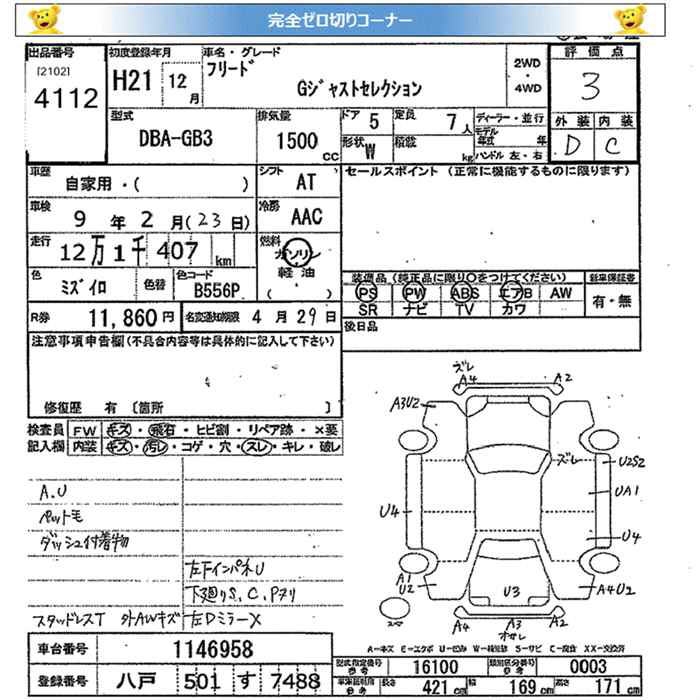 完全ゼロ切りコーナー
出品番号 初度登録年月 車名・グレード 評価点
[2102] 4112 H21 12月 フリード Gジャストセレクション 2WD・4WD 3
型式 排気量 ドア 5 定員 7人 ディーラー・並行 外装 内装
DBA-GB3 1500cc 形状 W 積載 kg モデル年式 年 D C
ハンドル 左・右
車歴 自家用・( ) シフト AT セールスポイント (正常に機能するものに限ります)
車検 9年2月(23日) 冷房 AAC
走行 12万1千407km 燃料 ガソリン
軽油
( )
色 ミズイロ 色替 色コード B556P 装備品 (純正品に限り〇をつけてください) 新車保証書
PS PW ABS エアB AW 有・無
SR ナビ TV カワ
R券 11,860円 名変通知期限 4月29日 後日品
注意事項申告欄(不具合内容等は具体的に記入して下さい)
修復歴 有 〔箇所 〕
検査員 FW キズ・飛石・ヒビ割・リペア跡・×要
記入欄 内装 キズ・汚レ・コゲ・穴・スレ・キレ・破レ
ズレ
A4 A2
A3U2
ズレ U2S2
UA1
U4 U4
A1
U2 U3 A4U2
A4 A3 A2
A.U
ペット毛
ダッシュ付着物
左下インパネU
下廻りS,C,Pヌリ
スタッドレスT 外AWキズ 左DミラーX
A-キズ E-エクボ U-凹み W-補修跡 S-サビ C-腐食 XX-交換済
車台番号 1146958
型式指定番号 参考 16100 類別区分番号 参考 0003
登録番号 八戸 501 す 7488
長さ 421cm 幅 169cm 高さ 171cm